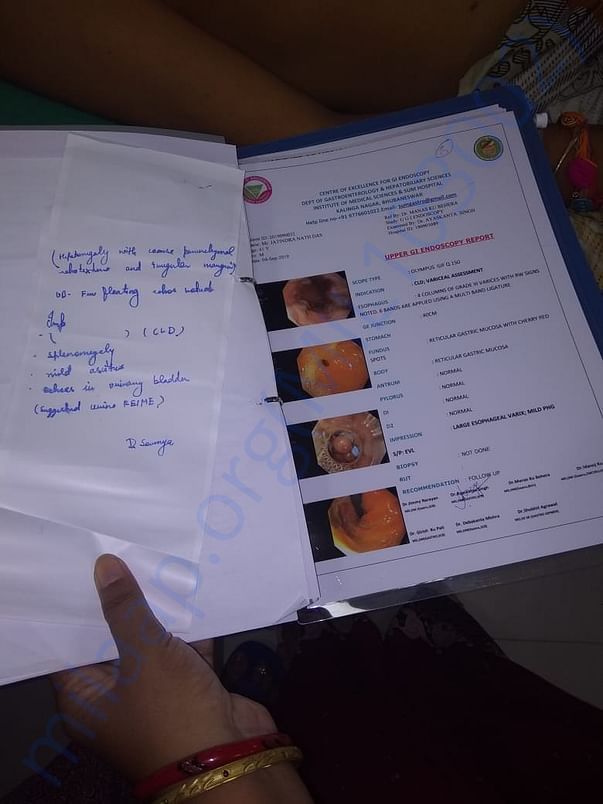 (Hepatomegaly with coarse parenchymal
echotexture and irregular margins)
floating echos
Imp
- ( ) (CLD)
- Splenomegaly
- mild ascites
- echoes in urinary bladder
(Suggested urine RE/ME)
Dr Soumya
CENTRE OF EXCELLENCE FOR GI ENDOSCOPY
DEPT OF GASTROENTEROLOGY & HEPATOBILIARY SCIENCES
INSTITUTE OF MEDICAL SCIENCES & SUM HOSPITAL
KALINGA NAGAR, BHUBANESWAR
Help line no-+91 8776601022 Email: sumgastro@gmail.com
Mr. JATINDRA NATH DAS
M
Sep-2019
Ref By: Dr. MANAS KU BEHERA
Study: U G I ENDOSCOPY
Examined By: Dr. AYASKANTA SINGH
Hospital ID:
UPPER GI ENDOSCOPY REPORT
SCOPE TYPE : OLYMPUS GIF Q 150
INDICATION : CLD; VARICEAL ASSESSMENT
ESOPHAGUS : 4 COLUMNS OF GRADE III VARICES WITH RW SIGNS
NOTED. 6 BANDS ARE APPLIED USING A MULTI BAND LIGATURE
GE JUNCTION : 40CM
STOMACH
FUNDUS : RETICULAR GASTRIC MUCOSA WITH CHERRY RED
SPOTS
BODY : RETICULAR GASTRIC MUCOSA
ANTRUM : NORMAL
PYLORUS : NORMAL
DI : NORMAL
D2 : NORMAL
IMPRESSION : LARGE ESOPHAGEAL VARIX; MILD PHG
S/P: EVL
BIOPSY : NOT DONE
RUT
RECOMMENDATION : FOLLOW UP
Dr Jimmy Narayan
Dr Ayaskanta Singh
Dr Manas Ku Behera
Dr Manoj
Dr Girish Ku Pati
Dr. Debakanta Mishra
Dr Shobhit Agrawal
milaap.org